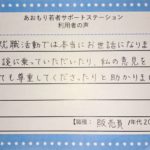 あおもり若者サポートステーション
利用者の声
就職活動では本当にお世話になりま
談に乗っていただいたり、私の意見を
ても尊重してくださったりと助かりま
【職種：販売員】年代20